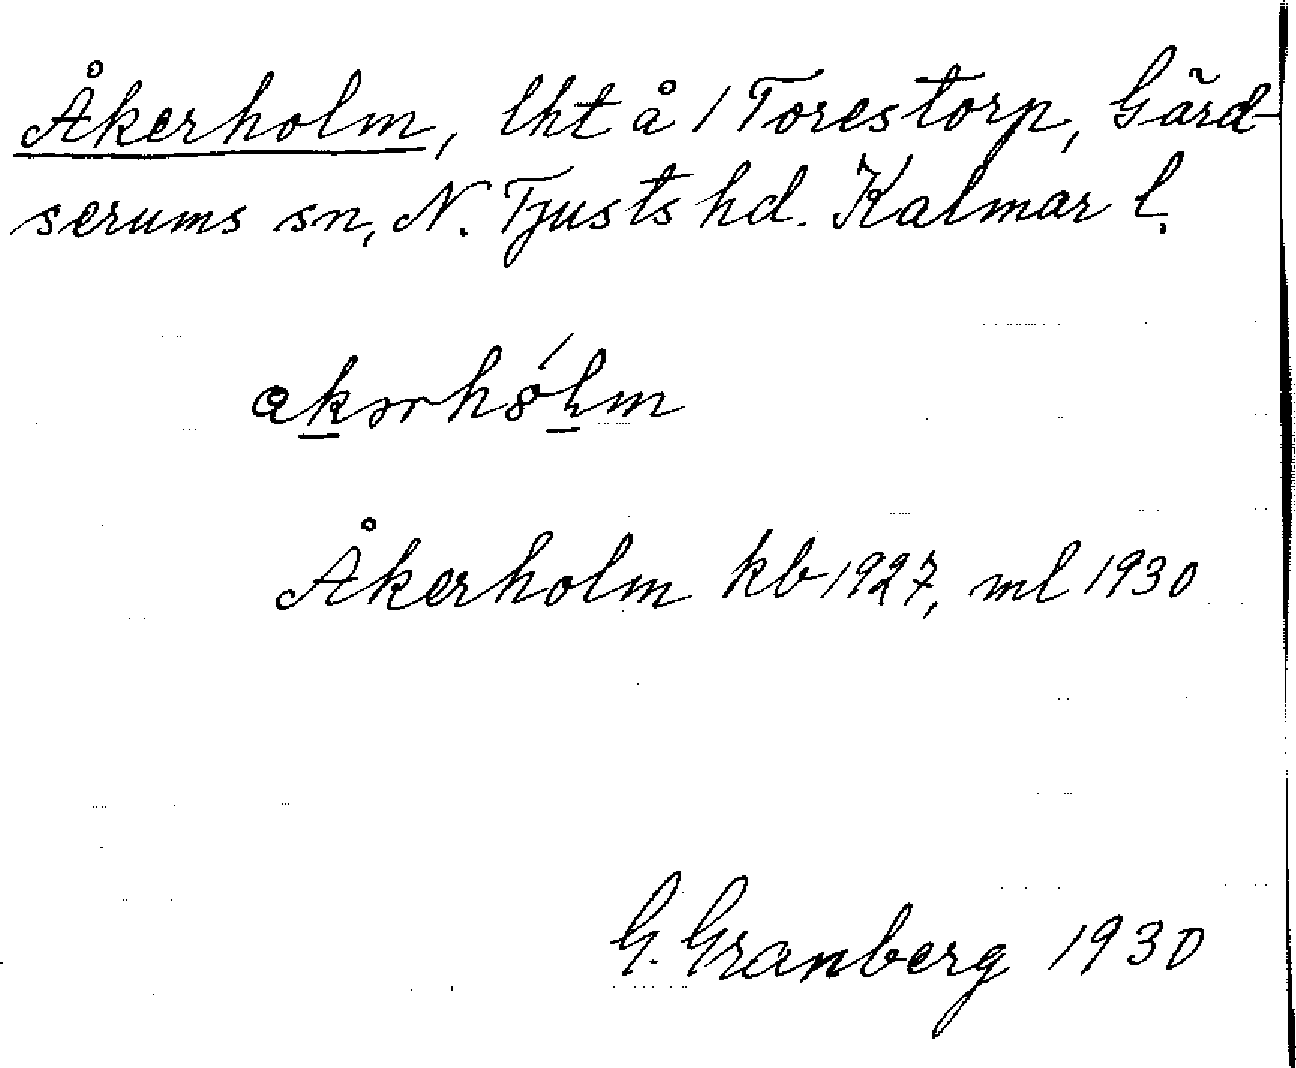 Åkerholm, lht å 1 Torestorp, Gärd-
serums sn, N. Tjusts hd. Kalmar l.
Åkerholm kb 1927, ml 1930
G. Granberg 1930